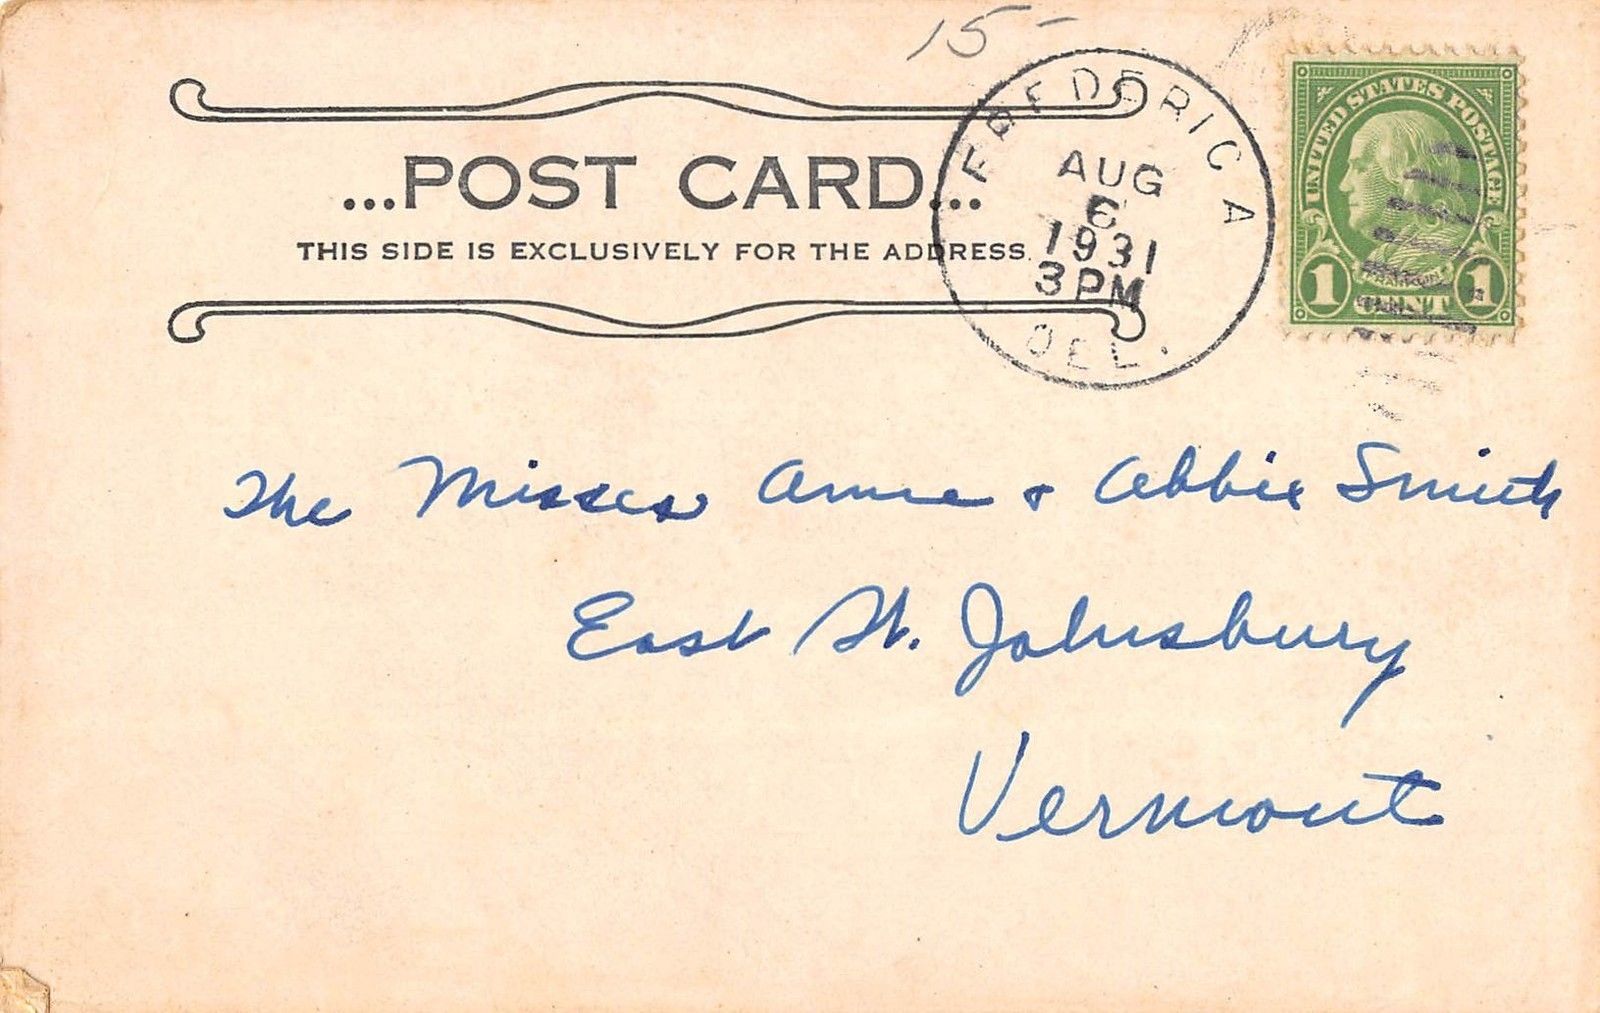 15-
...POST CARD...
THIS SIDE IS EXCLUSIVELY FOR THE ADDRESS.
FREDERICA
AUG
6
1931
3PM
DEL.
UNITED STATES POSTAGE
FRANKLIN
1 CENT 1
The Misses Anne & Abbie Smith
East St. Johnsbury
Vermont